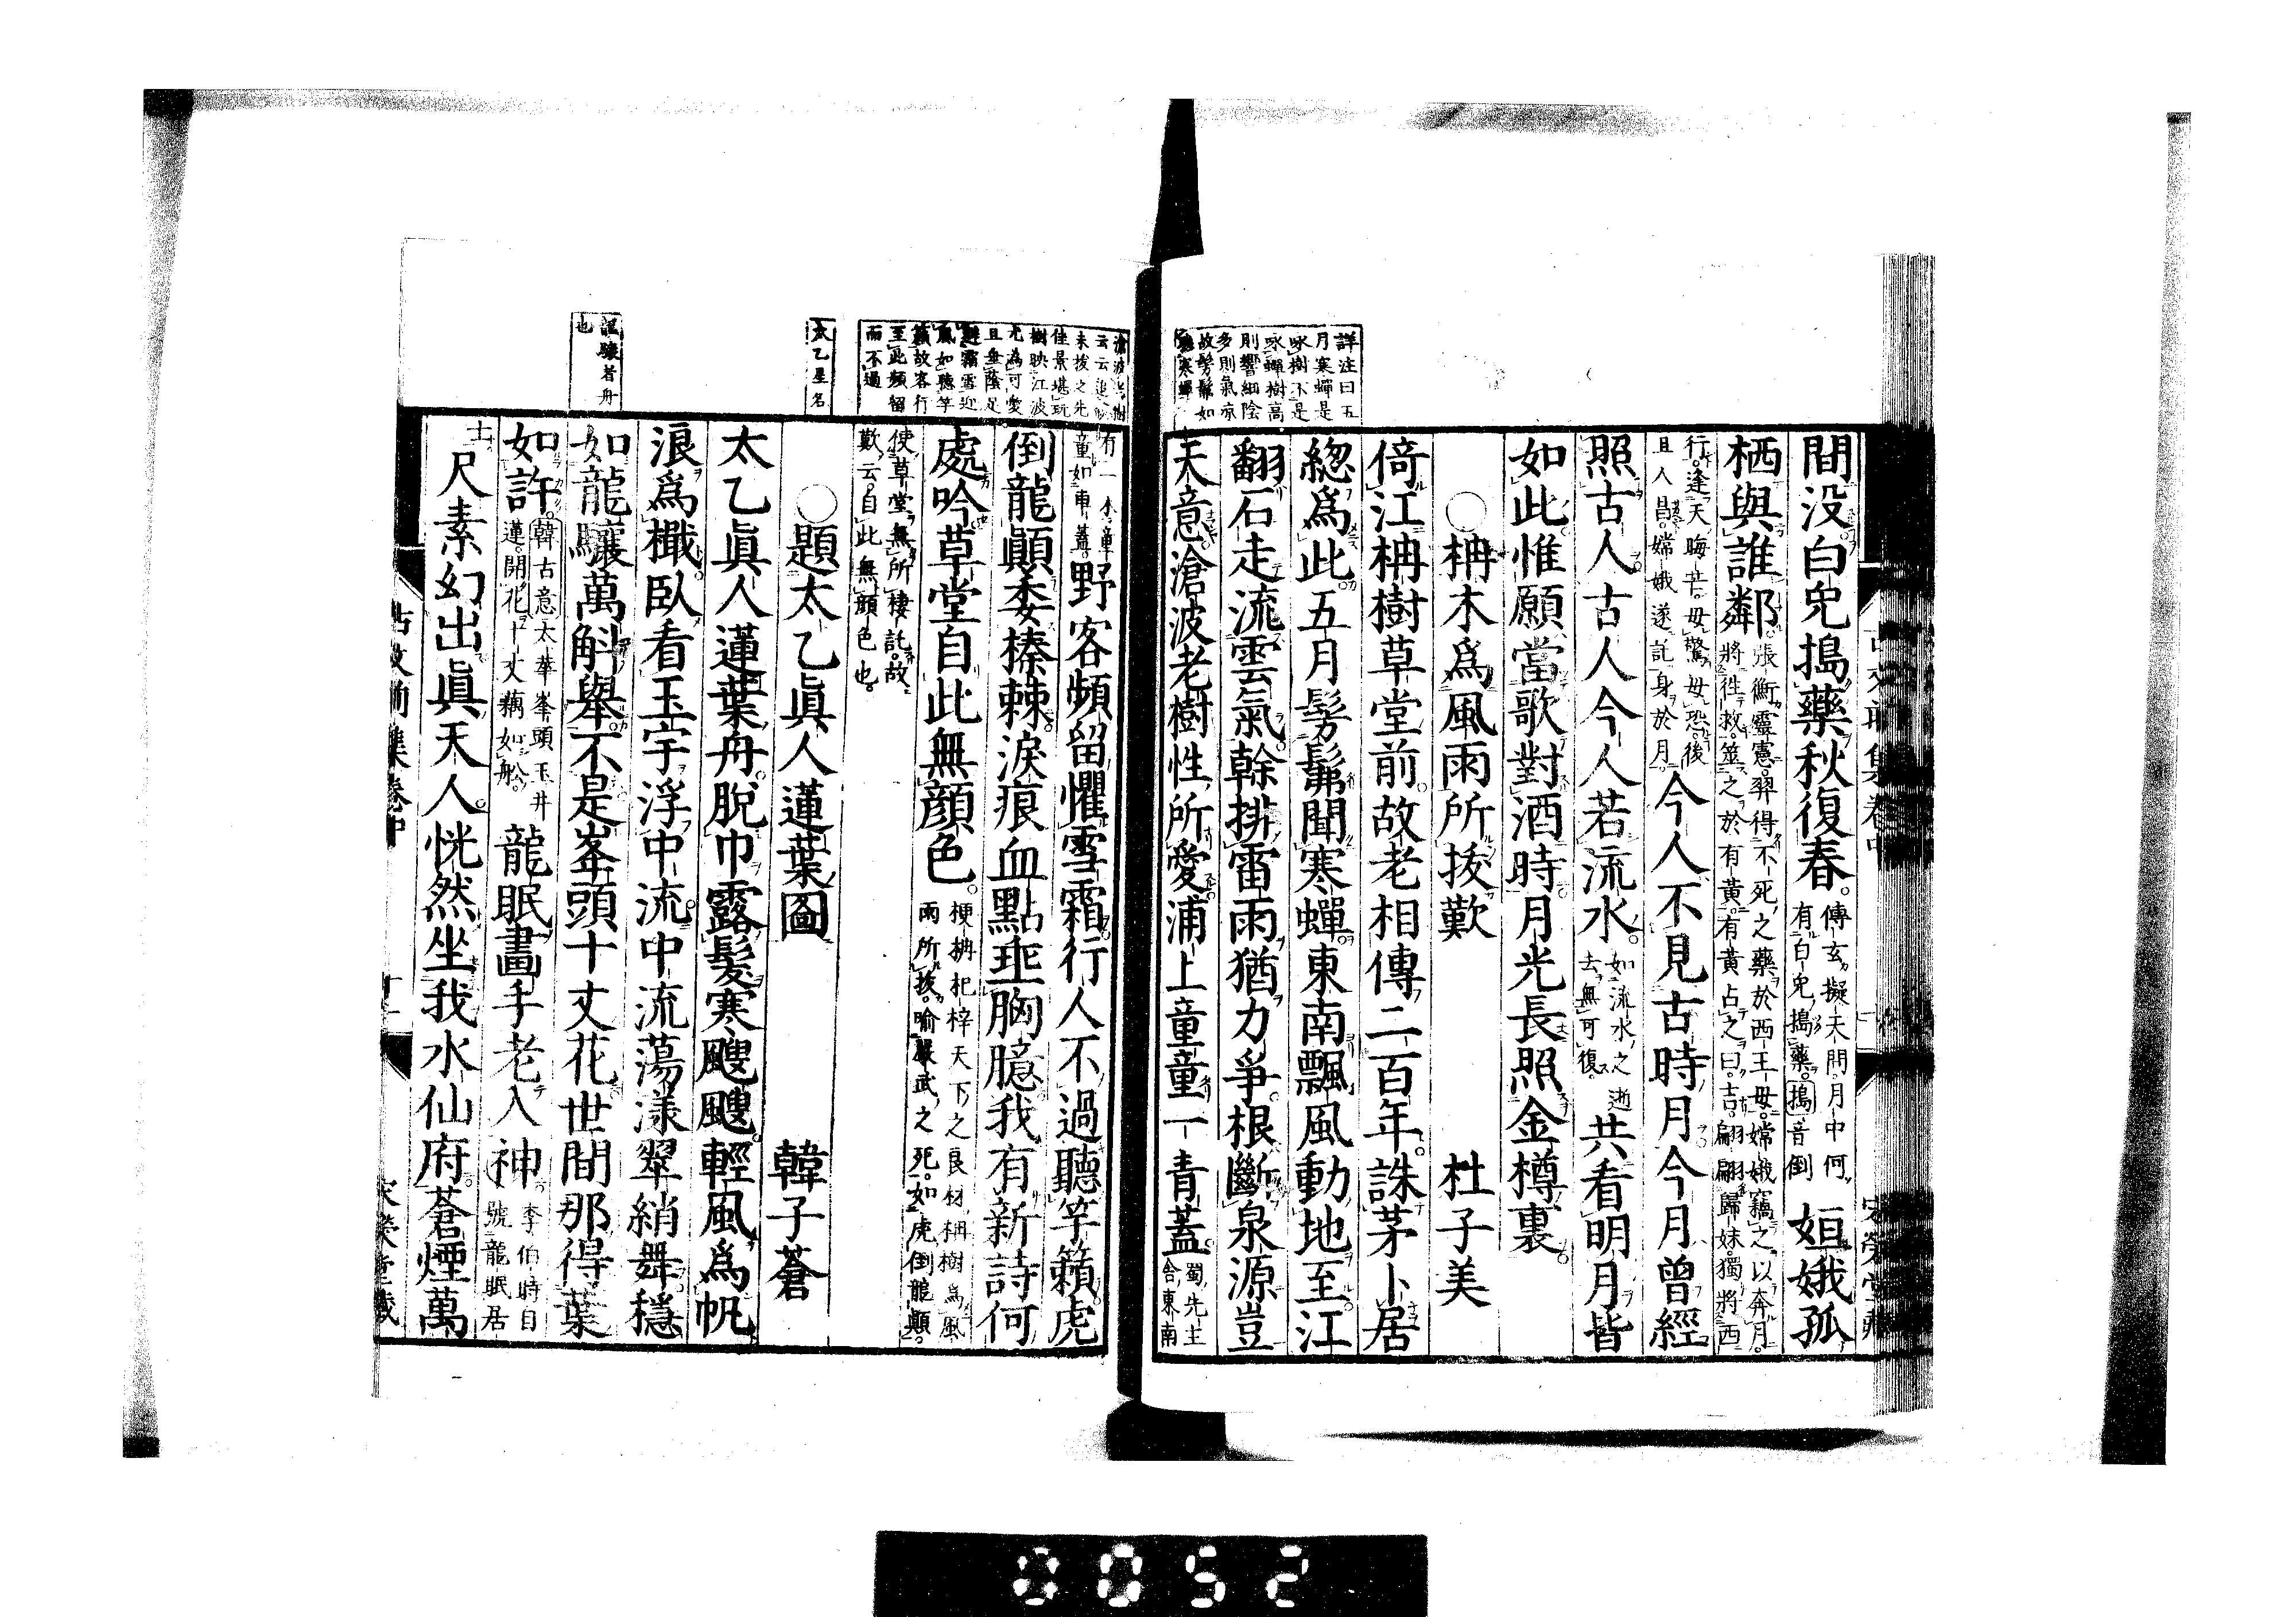 間没白兎搗藥秋復春。傅玄擬天問。月中何有。白兎搗藥。搗音倒 姮娥孤
栖與誰鄰。張衡靈憲。羿得不死之藥於西王母。嫦娥竊之以奔月。將往救筮之於有黃。有黃占之曰。吉。翩翩歸妹。獨將西
行。逢天晦芒。毋驚毋恐。後且人昌。嫦娥遂託身於月。今人不見古時月今月曾經
照古人古人今人若流水。如流水之逝去。無可復。共看明月皆
如此。惟願當歌對酒時。月光長照金樽裏
○柟木爲風雨所拔歎 杜子美
倚江柟樹草堂前故老相傳二百年。誅茅卜居
總爲此。五月髣髴聞寒蟬東南飄風動地至江
翻石走流雲氣。幹排雷雨猶力爭。根斷泉源豈
天意。滄波老樹性所愛浦上童童一青蓋。蜀先主舍東南
詳注曰五
月寒蟬是
咏樹不是
咏蟬樹高
則響細陰
多則氣凉
故髣髴如
聽寒蟬
有一木童童如車蓋。野客頻留懼雪霜行人不過聽竽籟。虎
倒龍顚委榛棘。淚痕血點垂胸臆。我有新詩何
處吟。草堂自此無顔色。梗柟杞梓天下之良材。柟樹爲風雨所拔。喻嚴武之死。如虎倒龍顚。
使草堂無所棲託。故歎云。自此無顔色也。
○題太乙眞人蓮葉圖 韓子蒼
太乙眞人蓮葉舟。脫巾露髮寒颼颼。輕風爲帆
浪爲檝。臥看玉宇浮中流。中流蕩漾翠綃舞穩
如龍驤萬斛舉。不是峯頭十丈花世間那得葉
如許。韓古意太華峯頭玉井蓮。開花十丈藕如舩。龍眠畫手老入神。李伯時自號龍眠居
士。尺素幻出眞天人。恍然坐我水仙府。蒼煙萬
未拔之先
佳景堪玩
樹映江波
尤爲可愛
且垂蔭足
避霜雪迎
風如聽竽
籟故客行
至此頻留
而不過
太乙星名
龍驤若舟
也
0052